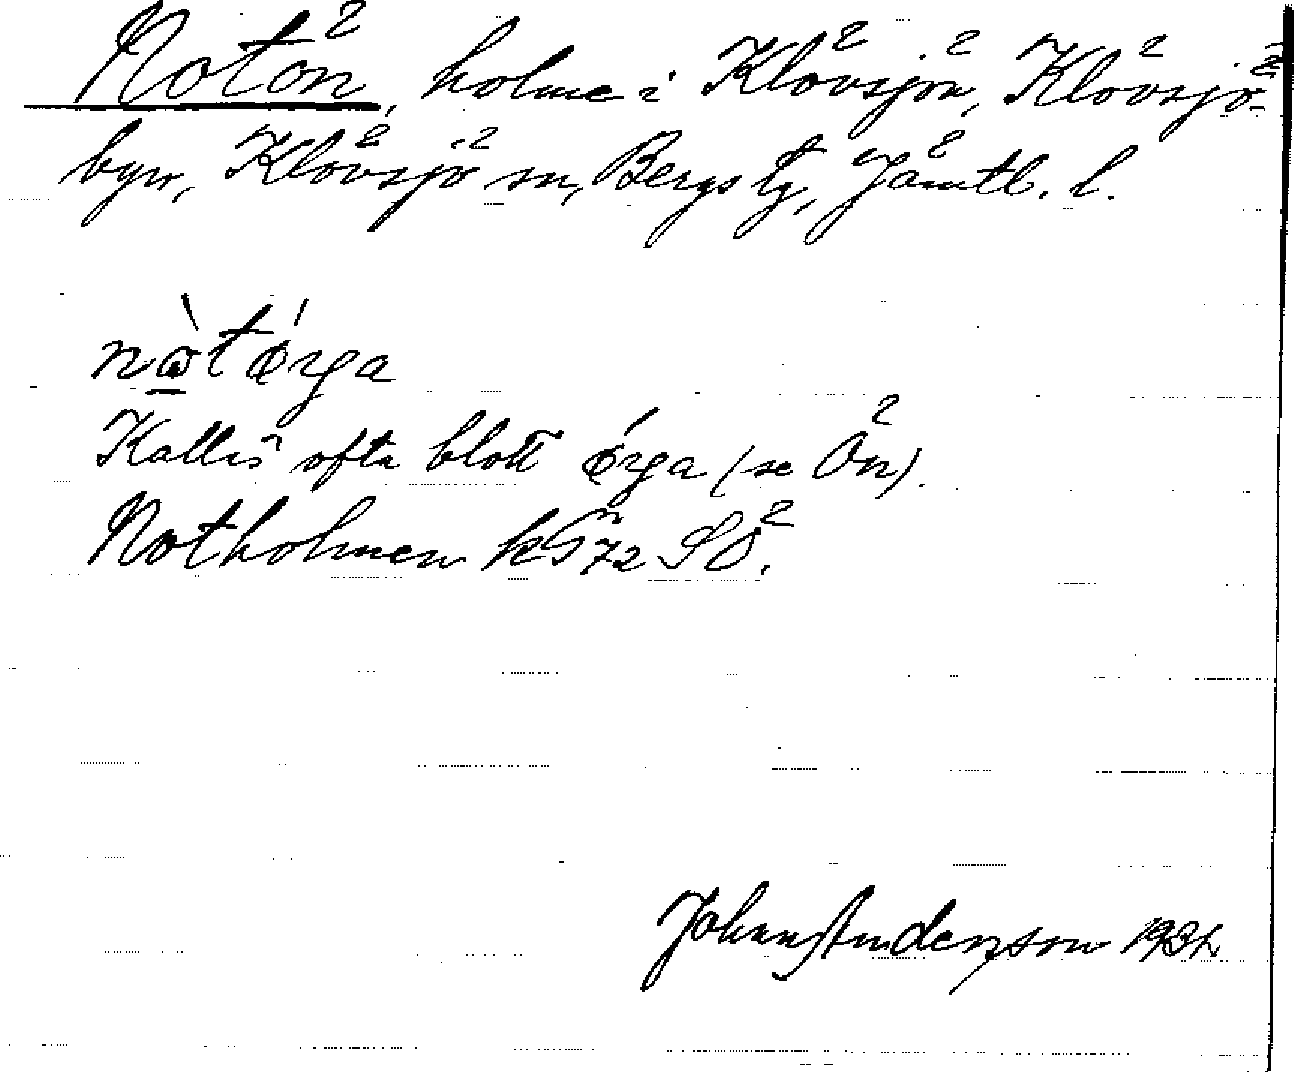 Notön, holme i Klövsjön, Klövsjö
byn, Klövsjö sn, Bergs tg, Jämtl. l.
nò̱t ǿrga
Kallas ofta blott ǿrga (se Ön).
Notholmen kG 72 SO.
Johan Anderzson 1934